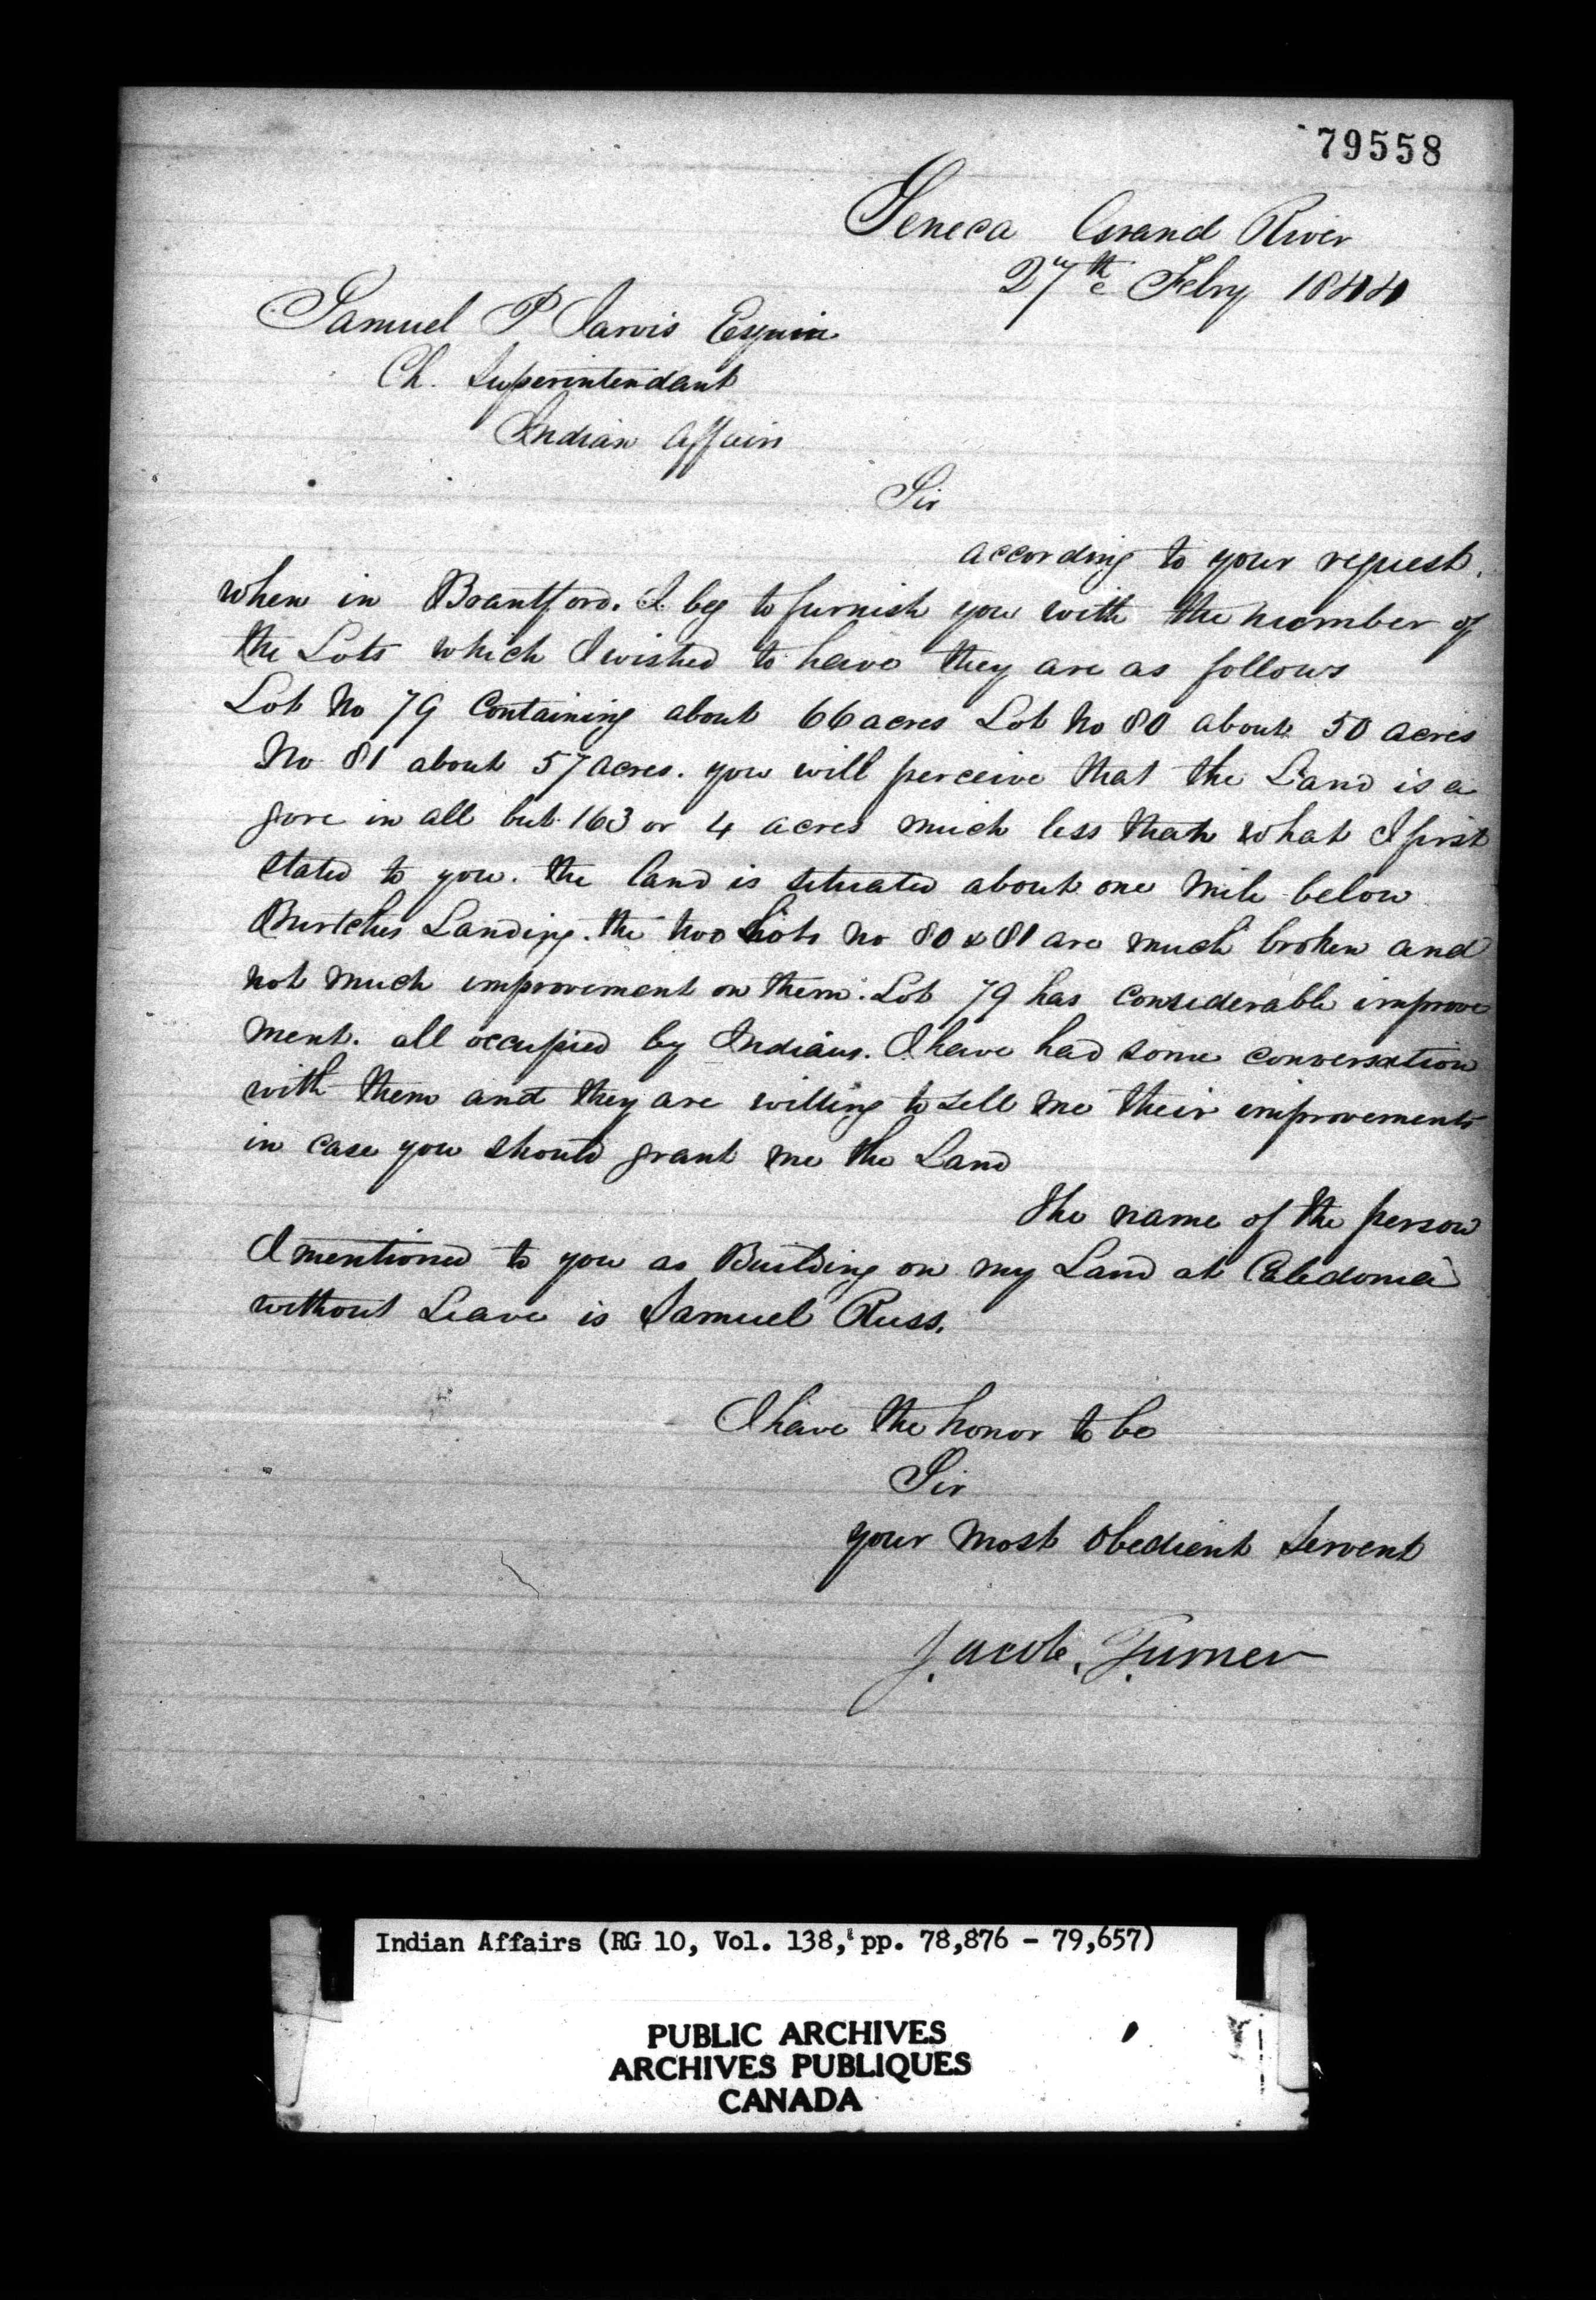 79558
Seneca Grand River
27th Febry 1844
Samuel P Jarvis Esquire
Ch. Superintendant
Indian Affairs
Sir
according to your request.
when in Brantford. I beg to furnish you with the number of
the Lots which I wished to have they are as follows
Lot No 79 Containing about 66 acres Lot No 80 about 50 acres
No 81 about 57 acres. you will perceive that the Land is a
gore in all but 163 or 4 acres much less than what I first
stated to you. the land is situated about one mile below
Burtches Landing. the two Lots no 80 & 81 are much broken and
not much improvement on them. Lot 79 has considerable improve
ment. all occupied by Indians. I have had some conversation
with them and they are willing to sell me their improvements
in case you should grant me the Land
the name of the person
I mentioned to you as Building on my Land at Caledonia
without Leave is Samuel Russ.
I have the honor to be
Sir
your most obedient servent
Jacob. Turner
Indian Affairs (RG 10, Vol. 138, pp. 78,876 - 79,657)
PUBLIC ARCHIVES
ARCHIVES PUBLIQUES
CANADA